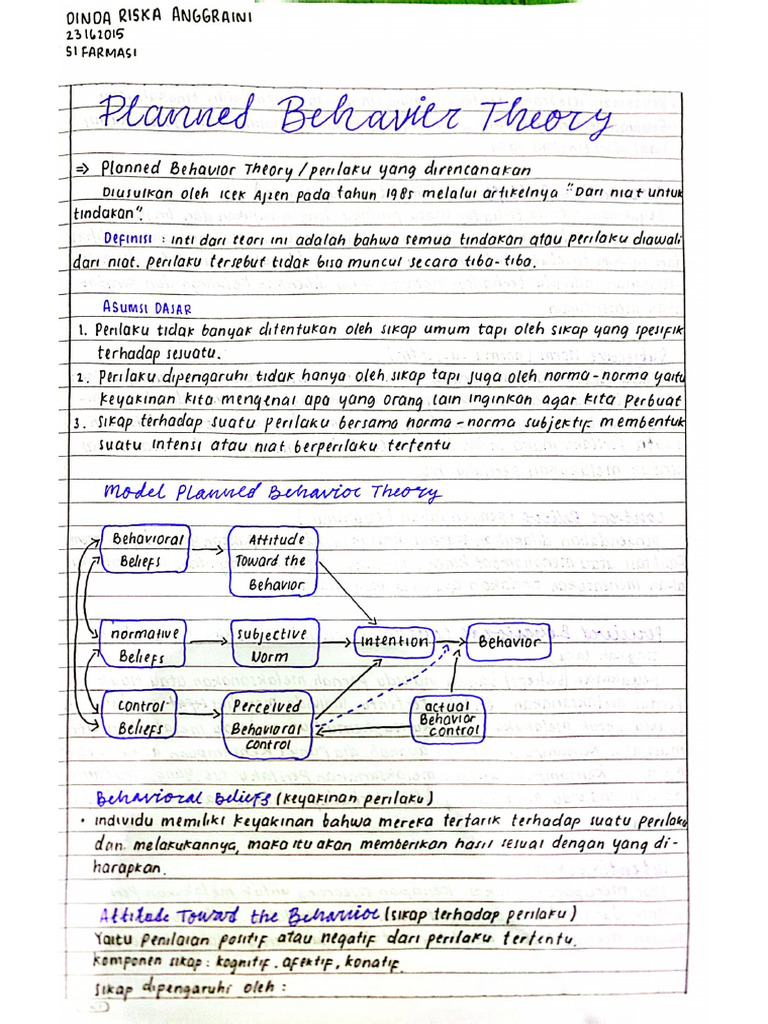 DINDA RISKA ANGGRAINI
23162015
S1 FARMASI
Planned Behavior Theory
⇒ Planned Behavior Theory / perilaku yang direncanakan
Diusulkan oleh Icek Ajzen pada tahun 1985 melalui artikelnya "Dari niat untuk
tindakan".
Definisi : inti dari teori ini adalah bahwa semua tindakan atau perilaku diawali
dari niat. perilaku tersebut tidak bisa muncul secara tiba-tiba.
ASUMSI DASAR
1. Perilaku tidak banyak ditentukan oleh sikap umum tapi oleh sikap yang spesifik
terhadap sesuatu.
2. Perilaku dipengaruhi tidak hanya oleh sikap tapi juga oleh norma-norma yaitu
keyakinan kita mengenai apa yang orang lain inginkan agar kita perbuat
3. Sikap terhadap suatu perilaku bersama norma-norma subjektif membentuk
suatu intensi atau niat berperilaku tertentu
Model Planned Behavior Theory
Behavioral
Beliefs
Attitude
Toward the
Behavior
normative
Beliefs
subjective
Norm
Intention
Behavior
Control
Beliefs
Perceived
Behavioral
Control
actual
Behavior
control
Behavioral Beliefs (keyakinan perilaku)
• individu memiliki keyakinan bahwa mereka tertarik terhadap suatu perilaku
dan melakukannya, maka itu akan memberikan hasil sesuai dengan yang di-
harapkan.
Attitude Toward the Behavior (sikap terhadap perilaku)
Yaitu penilaian positif atau negatif dari perilaku tertentu.
komponen sikap : kognitif. afektif, konatif.
sikap dipengaruhi oleh :